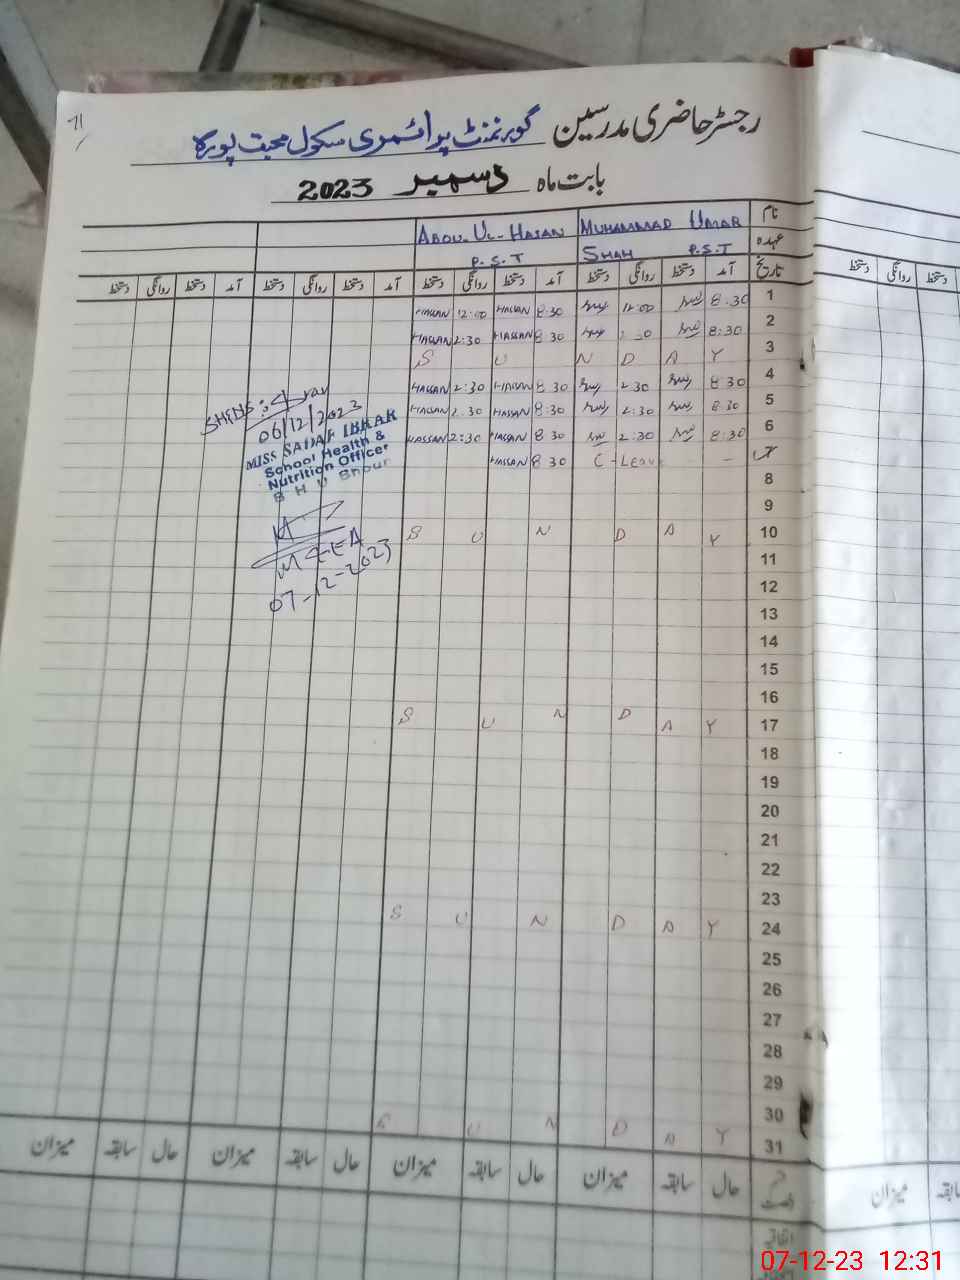 71
رجسٹر حاضری مدرسین گورنمنٹ پرائمری سکول محبت پور
بابت ماہ دسمبر 2023
نام MUHAMMAD UMAR ABDU-UL-HASAN
عہدہ SHAH P.S.T P.S.T
تاریخ آمد دستخط روانگی دستخط آمد دستخط روانگی دستخط آمد دستخط روانگی دستخط آمد دستخط روانگی دستخط
1 8:30 12:00 8:30 HASSAN 12:00 HASSAN
2 8:30 8:30 HASSAN 2:30 HASSAN
3 S U N D A Y
4 8:30 2:30 8:30 HASSAN 2:30 HASSAN
5 8:30 2:30 8:30 HASSAN 2:30 HASSAN
6 8:30 2:30 8:30 HASSAN 2:30 HASSAN
7 C-Leave 8:30 HASSAN
8
9
10 S U N D A Y
11
12
13
14
15
16
17 S U N D A Y
18
19
20
21
22
23
24 S U N D A Y
25
26
27
28
29
30
31 S U N D A Y
حال سابقہ میزان حال سابقہ میزان حال سابقہ میزان حال سابقہ میزان
SHENS:
06/12/2023
MISS SADAF IBRAR
School Health &
Nutrition Officer
B H U
MEEA
07-12-2023
دستخط روانگی دستخط
میزان
07-12-23 12:31